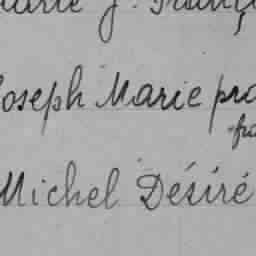 Marie J. Franç
Joseph Marie pro
fra
Michel Désiré